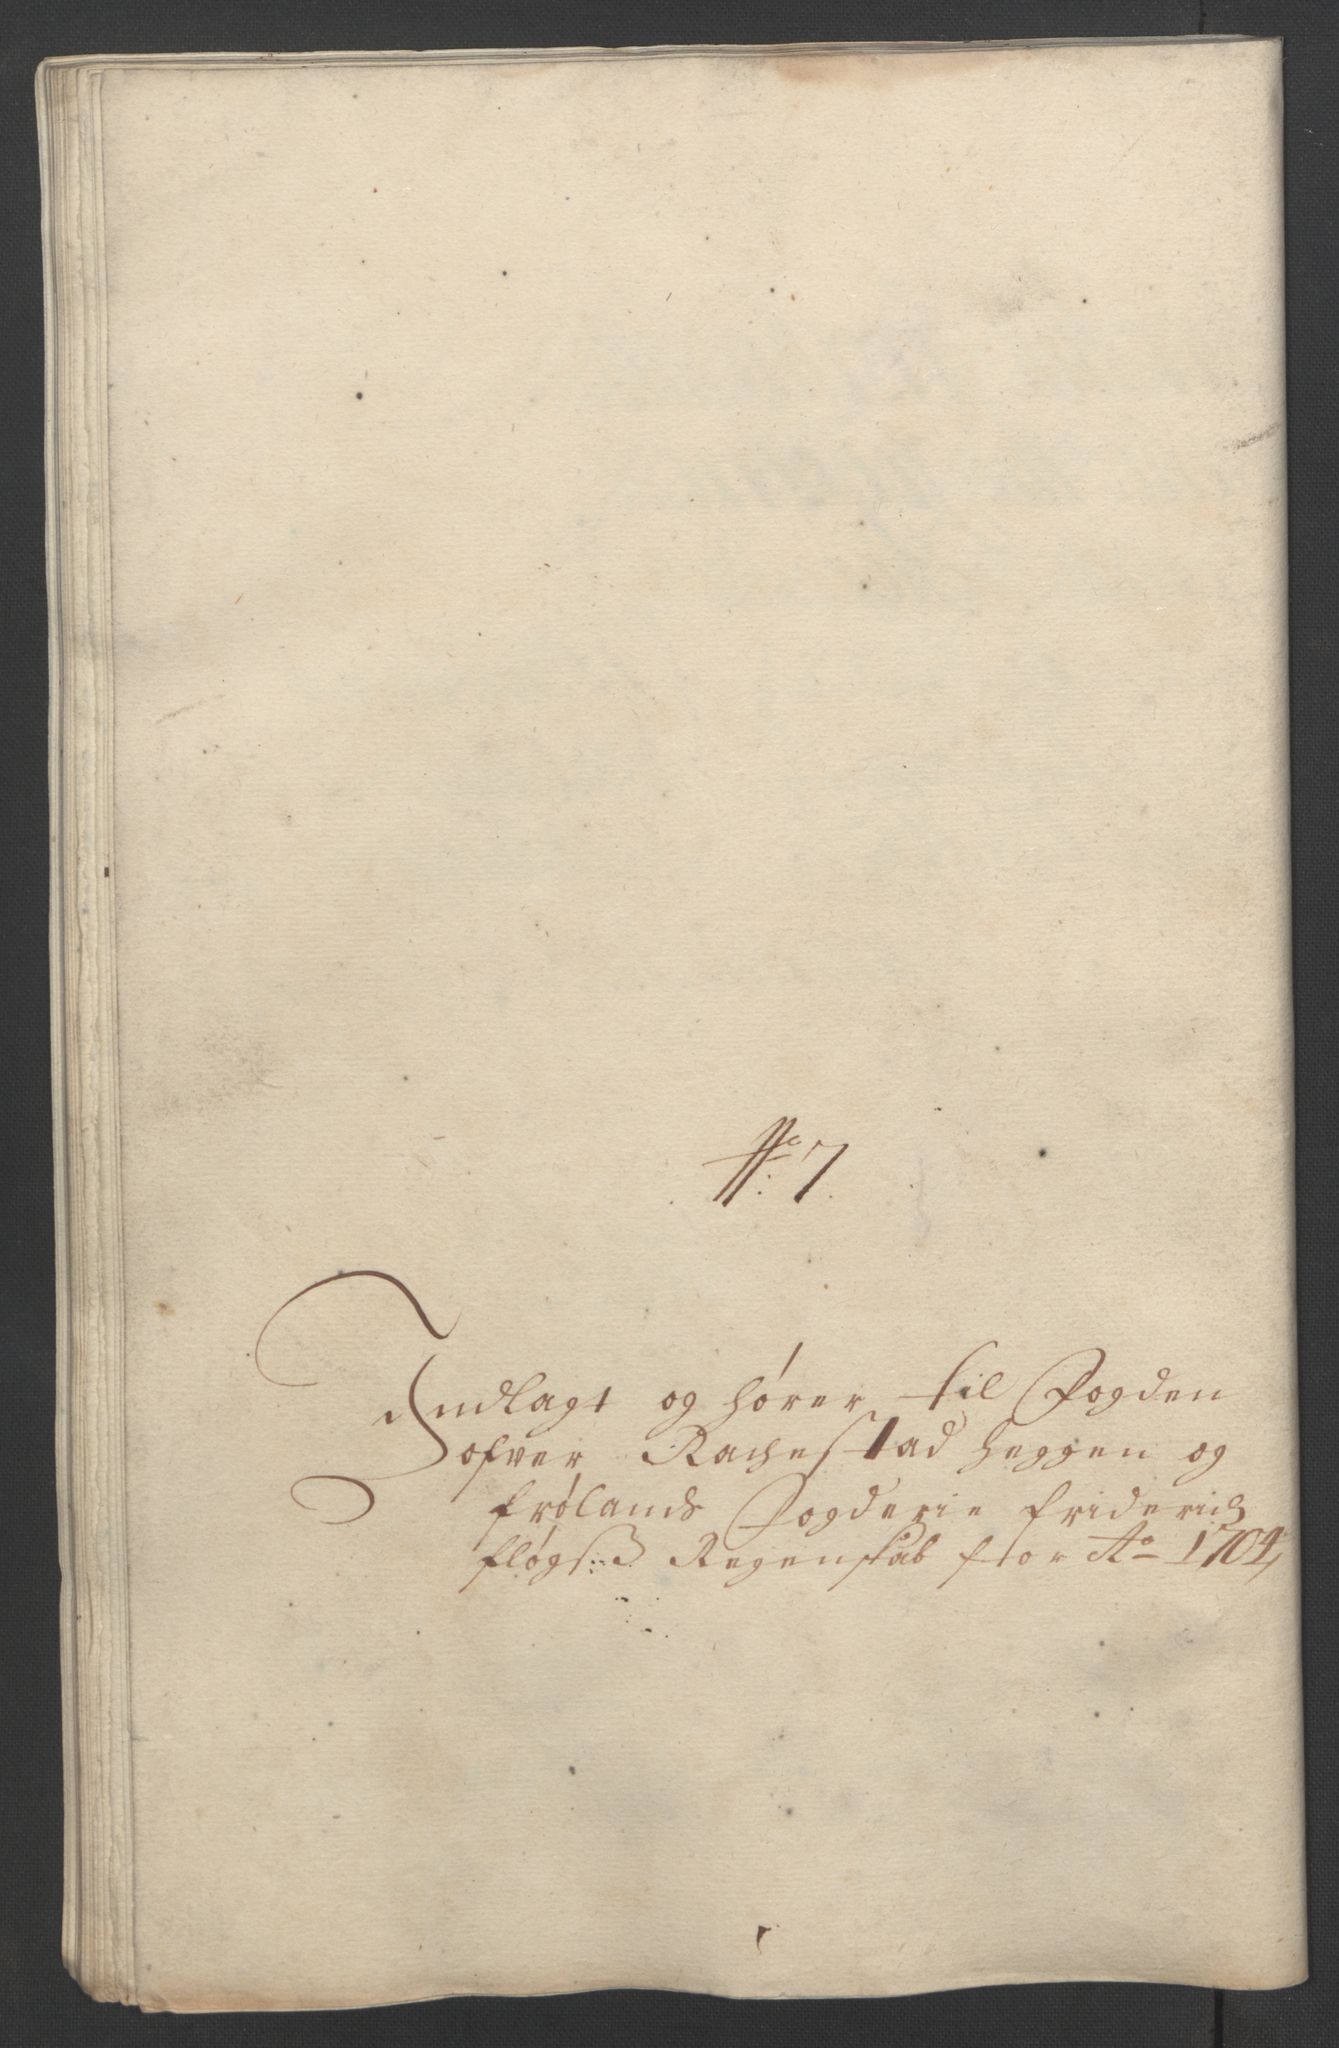 No: 7.
Indlagt og hører til Fogden
ofver Rachestad Heggen og
Frølands Fogderie Friderich
Fløgs:ß Regenskab for Ao 1704,